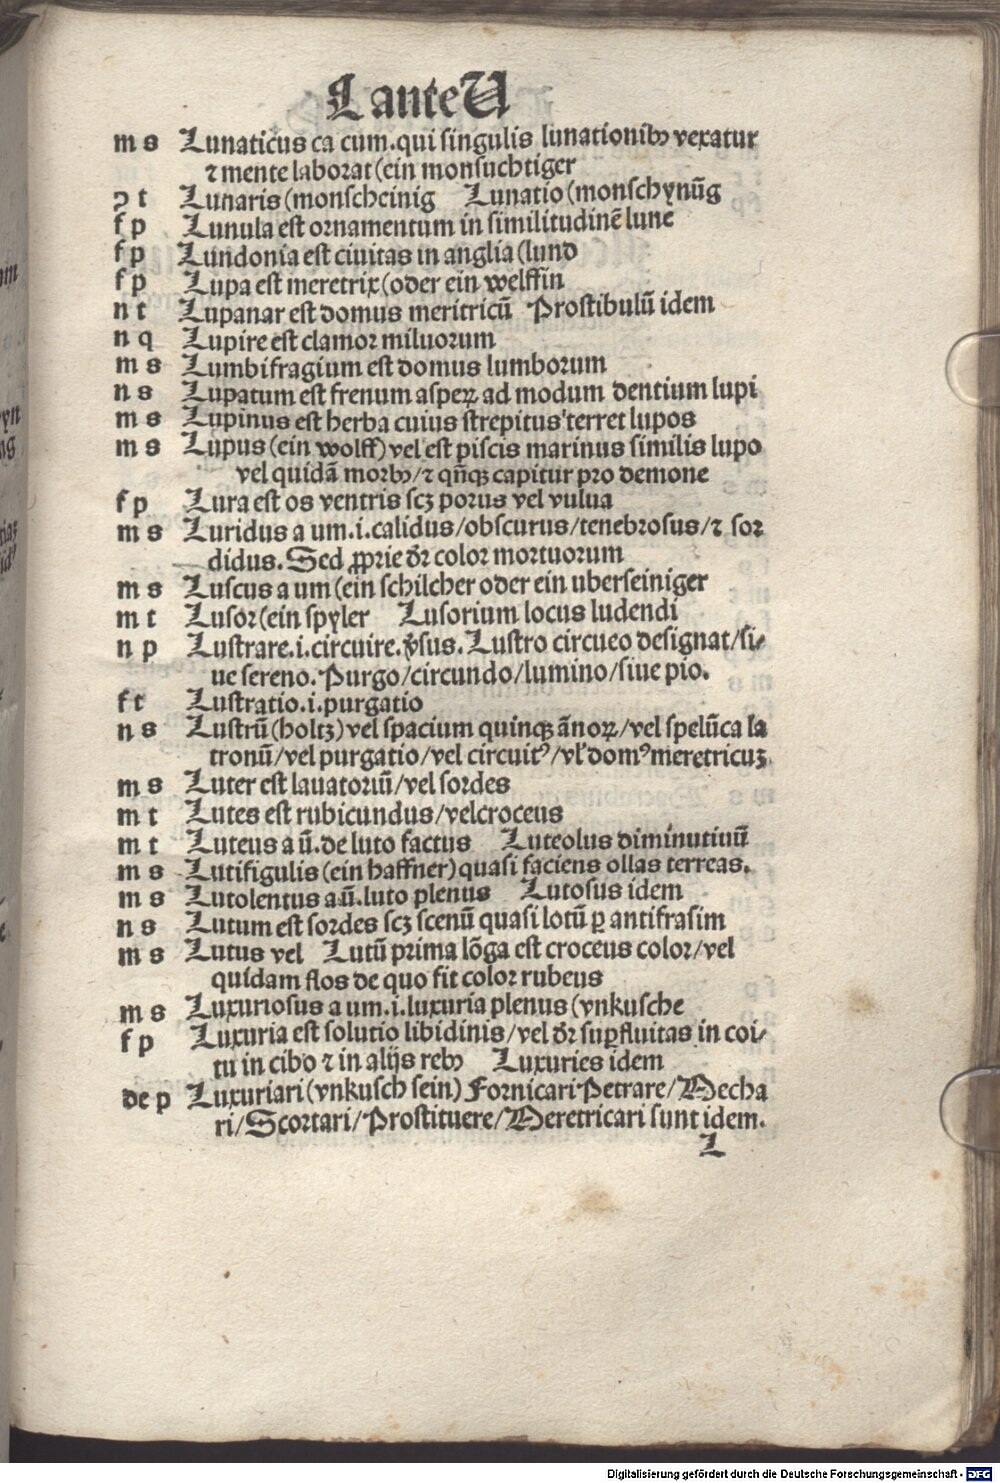 L ante U
m s Lunaticus ca cum.qui singulis lunationibꝫ vexatur
⁊ mente laborat(ein monsuchtiger
ↄ t Lunaris(monscheinig Lunatio(monschynūg
f p Lunula est ornamentum in similitudinē lune
f p Lundonia est ciuitas in anglia(lund
f p Lupa est meretrix(oder ein welffin
n t Lupanar est domus meritricū Prostibulū idem
n q Lupire est clamor miluorum
m s Lumbifragium est domus lumborum
n s Lupatum est frenum asperꝝ ad modum dentium lupi
m s Lupinus est herba cuius strepitus terret lupos
m s Lupus (ein wolff) vel est piscis marinus similis lupo
vel quidā morbꝫ/⁊ qn̄qꝫ capitur pro demone
f p Lura est os ventris scꝫ porus vel vulua
m s Luridus a um.i.calidus/obscurus/tenebrosus/⁊ sor
didus. Sed ꝓprie dr̄ color mortuorum
m s Luscus a um (ein schilcher oder ein uberseiniger
m t Lusor(ein spyler Lusorium locus ludendi
n p Lustrare.i.circuire.v̄sus. Lustro circueo designat/si-
ue sereno. Purgo/circundo/lumino/siue pio.
f t Lustratio.i.purgatio
n s Lustrū (holtz) vel spacium quinqꝫ ānoꝝ/vel spelūca la
tronū/vel purgatio/vel circuitꝰ/vl' domꝰ meretricuꝫ
m s Luter est lauatoriū/vel sordes
m t Lutes est rubicundus/vel croceus
m t Luteus a ū.de luto factus Luteolus diminutiuū
m s Lutifigulis (ein haffner) quasi faciens ollas terreas.
m s Lutolentus a ū.luto plenus Lutosus idem
n s Lutum est sordes scꝫ scenū quasi lotū ꝑ antifrasim
m s Lutus vel Lutū prima lōga est croceus color/vel
quidam flos de quo fit color rubeus
m s Luxuriosus a um.i.luxuria plenus (vnkusche
f p Luxuria est solutio libidinis/vel dr̄ suꝑfluitas in coi-
tu in cibo ⁊ in alijs rebꝫ Luxuries idem
de p Luxuriari (vnkusch sein) Fornicari Petrare/Mecha
ri/Scortari/Prostituere/Meretricari sunt idem.
L
Digitalisierung gefördert durch die Deutsche Forschungsgemeinschaft - DFG